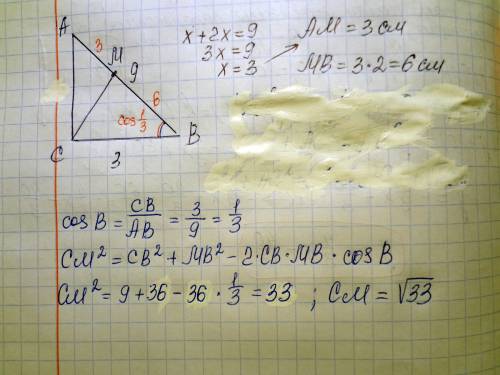 A
3
M
9
6
cos 1/3
C
3
B
x+2x=9
3x=9
x=3
AM=3см
MB=3·2=6см
cosB = CB/AB = 3/9 = 1/3
CM² = CB² + MB² − 2·CB·MB·cosB
CM² = 9+36−36·1/3 = 33 ; CM = √33